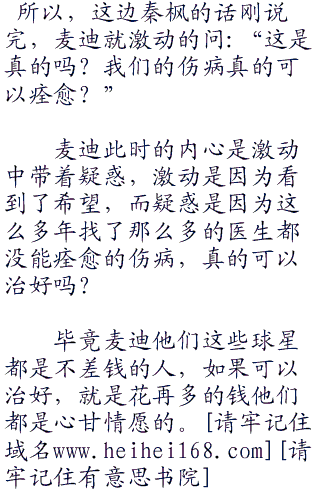 所以，这边秦枫的话刚说
完，麦迪就激动的问：“这是
真的吗？我们的伤病真的可
以痊愈？”
麦迪此时的内心是激动
中带着疑惑，激动是因为看
到了希望，而疑惑是因为这
么多年找了那么多的医生都
没能痊愈的伤病，真的可以
治好吗？
毕竟麦迪他们这些球星
都是不差钱的人，如果可以
治好，就是花再多的钱他们
都是心甘情愿的。[请牢记住
域名www.heihei168.com][请
牢记住有意思书院]